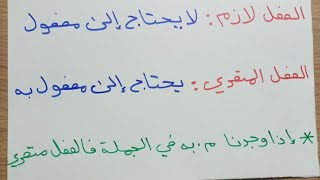 الفعل لازم : لا يحتاج إلى مفعول
الفعل المتعدي : يحتاج إلى مفعول به
* إذا وجدنا م . به في الجملة فالفعل متعدي